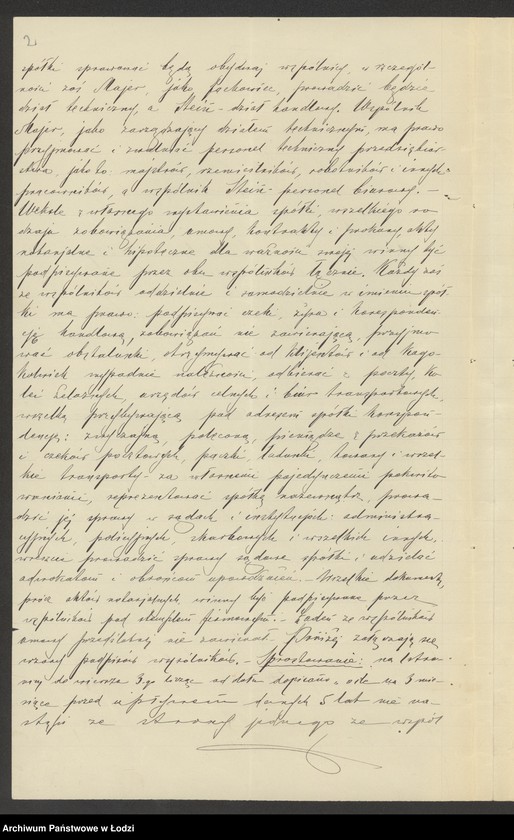 2
spółki sprawować będą obydwaj wspólnicy, w szczegól-
ności zaś Majer, jako fachowiec, prowadzić będzie
dział techniczny, a Stein - dział handlowy. Wspólnik
Majer, jako zarządzający działem technicznym, ma prawo
przyjmować i zwalniać personel techniczny przedsiębior-
stwa, jako to: majstrów, rzemieślników, robotników i innych
pracowników, a wspólnik Stein - personel biurowy. -
Weksle z własnego wystawienia spółki, wszelkiego ro-
dzaju zobowiązania, umowy, kontrakty i prokury, akty
notarjalne i hipoteczne dla ważności swojej winny być
podpisywane przez obu wspólników łącznie. Każdy zaś
ze wspólników oddzielnie i samodzielnie w imieniu spół-
ki ma prawo: podpisywać czeki, żyra i koresponden-
cję handlową, zobowiązań nie zawierającą, przyjmo-
wać obstalunki, otrzymywać od klijentów i od kogo-
kolwiek wypadnie należności, odbierać z poczty, ko-
lei żelaznych, urzędów celnych i biur transportowych
wszelką przybywającą pod adresem spółki korespon-
dencję: zwyczajną, poleconą, pieniądze z przekazów
i czeków pocztowych, paczki, ładunki, towary i wszel-
kie transporty - za własnem pojedyńczem pokwito-
waniem, reprezentować spółkę nazewnątrz, prowa-
dzić jej sprawy w sądach i instytucjach: administra-
cyjnych, policyjnych, skarbowych i wszelkich innych,
wreszcie prowadzić sprawy sądowe spółki i udzielać
adwokatom i obrońcom upoważnień. - Wszelkie dokumenty,
prócz aktów notarjalnych, winny być podpisywane przez
wspólników pod stemplem firmowym. - Żaden ze wspólników
umowy przedślubnej nie zawierał. Poniżej załączają się
wzory podpisów wspólników. - Sprostowanie: na
do wiersza 3-go licząc od dołu dopisano: o ile na 3 mie-
siące przed upływem danych 5 lat nie na-
stąpi ze strony jednego ze wspól
Archiwum Państwowe w Łodzi